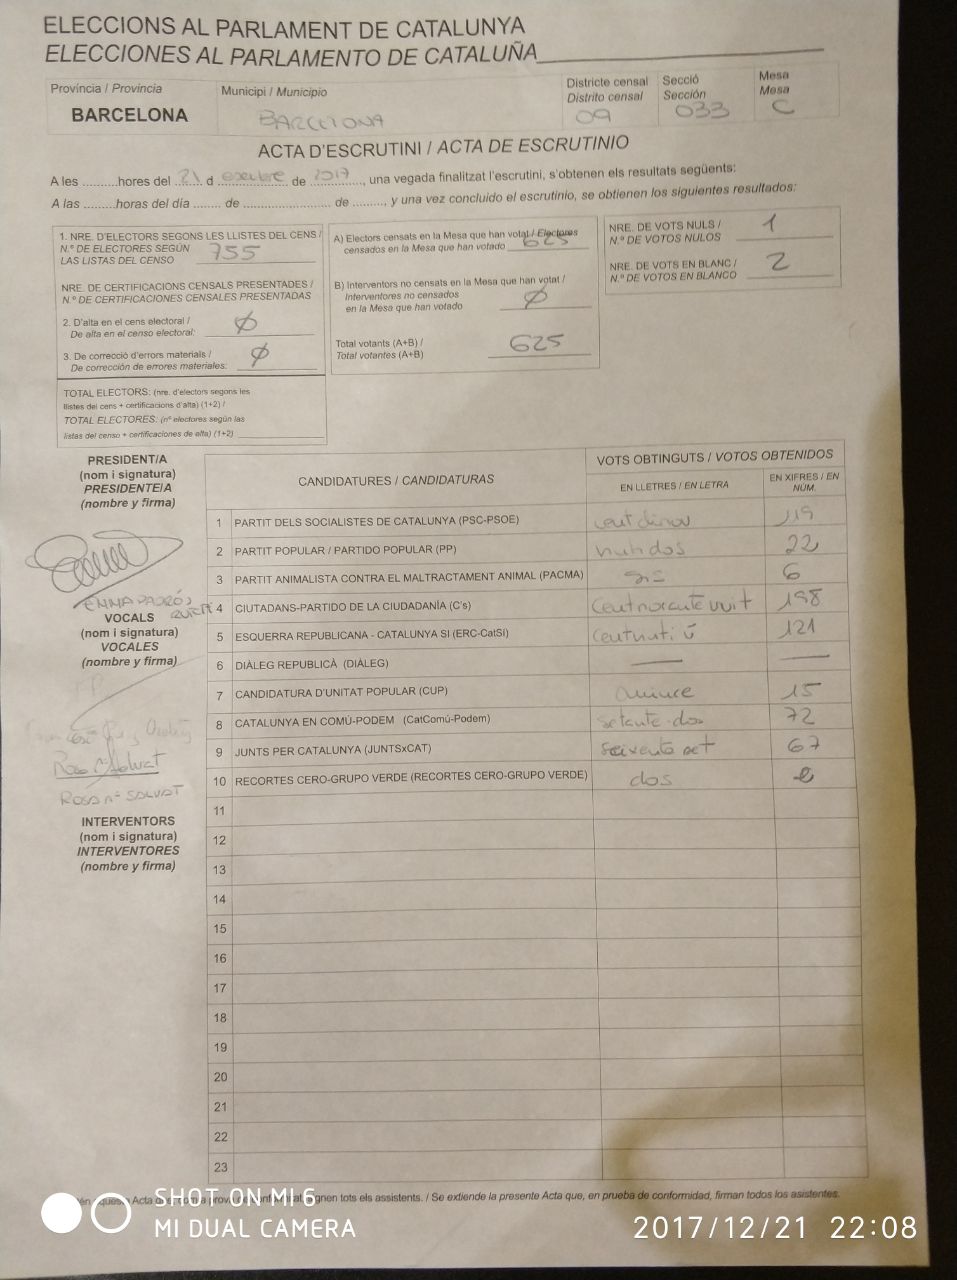 ELECCIONS AL PARLAMENT DE CATALUNYA
ELECCIONES AL PARLAMENTO DE CATALUÑA
Província / Provincia
BARCELONA
Municipi / Municipio
BARCELONA
Districte censal
Distrito censal
09
Secció
Sección
033
Mesa
Mesa
C
ACTA D'ESCRUTINI / ACTA DE ESCRUTINIO
A les .........hores del 21 d ................. de 2017, una vegada finalitzat l'escrutini, s'obtenen els resultats següents:
A las .........horas del día ....... de ...................... de ........., y una vez concluido el escrutinio, se obtienen los siguientes resultados:
1. NRE. D'ELECTORS SEGONS LES LLISTES DEL CENS /
N.º DE ELECTORES SEGÚN
LAS LISTAS DEL CENSO
755
NRE. DE CERTIFICACIONS CENSALS PRESENTADES /
N.º DE CERTIFICACIONES CENSALES PRESENTADAS
2. D'alta en el cens electoral /
De alta en el censo electoral: Ø
3. De correcció d'errors materials /
De corrección de errores materiales: Ø
TOTAL ELECTORS: (nre. d'electors segons les
llistes del cens + certificacions d'alta) (1+2) /
TOTAL ELECTORES: (nº electores según las
listas del censo + certificaciones de alta) (1+2)
A) Electors censats en la Mesa que han votat / Electores
censados en la Mesa que han votado 625
B) Interventors no censats en la Mesa que han votat /
Interventores no censados
en la Mesa que han votado Ø
Total votants (A+B) /
Total votantes (A+B)
625
NRE. DE VOTS NULS /
N.º DE VOTOS NULOS 1
NRE. DE VOTS EN BLANC /
N.º DE VOTOS EN BLANCO 2
PRESIDENT/A
(nom i signatura)
PRESIDENTE/A
(nombre y firma)
EMMA PADRÓS
VOCALS
(nom i signatura)
VOCALES
(nombre y firma)
Rosa Mª Salvat
ROSA Mª SALVAT
INTERVENTORS
(nom i signatura)
INTERVENTORES
(nombre y firma)
CANDIDATURES / CANDIDATURAS
VOTS OBTINGUTS / VOTOS OBTENIDOS
EN LLETRES / EN LETRA
EN XIFRES / EN NÚM.
1 PARTIT DELS SOCIALISTES DE CATALUNYA (PSC-PSOE) cent dinou 119
2 PARTIT POPULAR / PARTIDO POPULAR (PP) vint i dos 22
3 PARTIT ANIMALISTA CONTRA EL MALTRACTAMENT ANIMAL (PACMA) sis 6
4 CIUTADANS-PARTIDO DE LA CIUDADANÍA (C's) Cent norante vuit 198
5 ESQUERRA REPUBLICANA - CATALUNYA SI (ERC-CatSI) Cent vint i ú 121
6 DIÀLEG REPUBLICÀ (DIÀLEG) — —
7 CANDIDATURA D'UNITAT POPULAR (CUP) quince 15
8 CATALUNYA EN COMÚ-PODEM (CatComú-Podem) setante-dos 72
9 JUNTS PER CATALUNYA (JUNTSxCAT) seixenta set 67
10 RECORTES CERO-GRUPO VERDE (RECORTES CERO-GRUPO VERDE) dos 2
11
12
13
14
15
16
17
18
19
20
21
22
23
aquesta Acta que, com a prova de conformitat, signen tots els assistents. / Se extiende la presente Acta que, en prueba de conformidad, firman todos los asistentes.
SHOT ON MI 6
MI DUAL CAMERA
2017/12/21 22:08